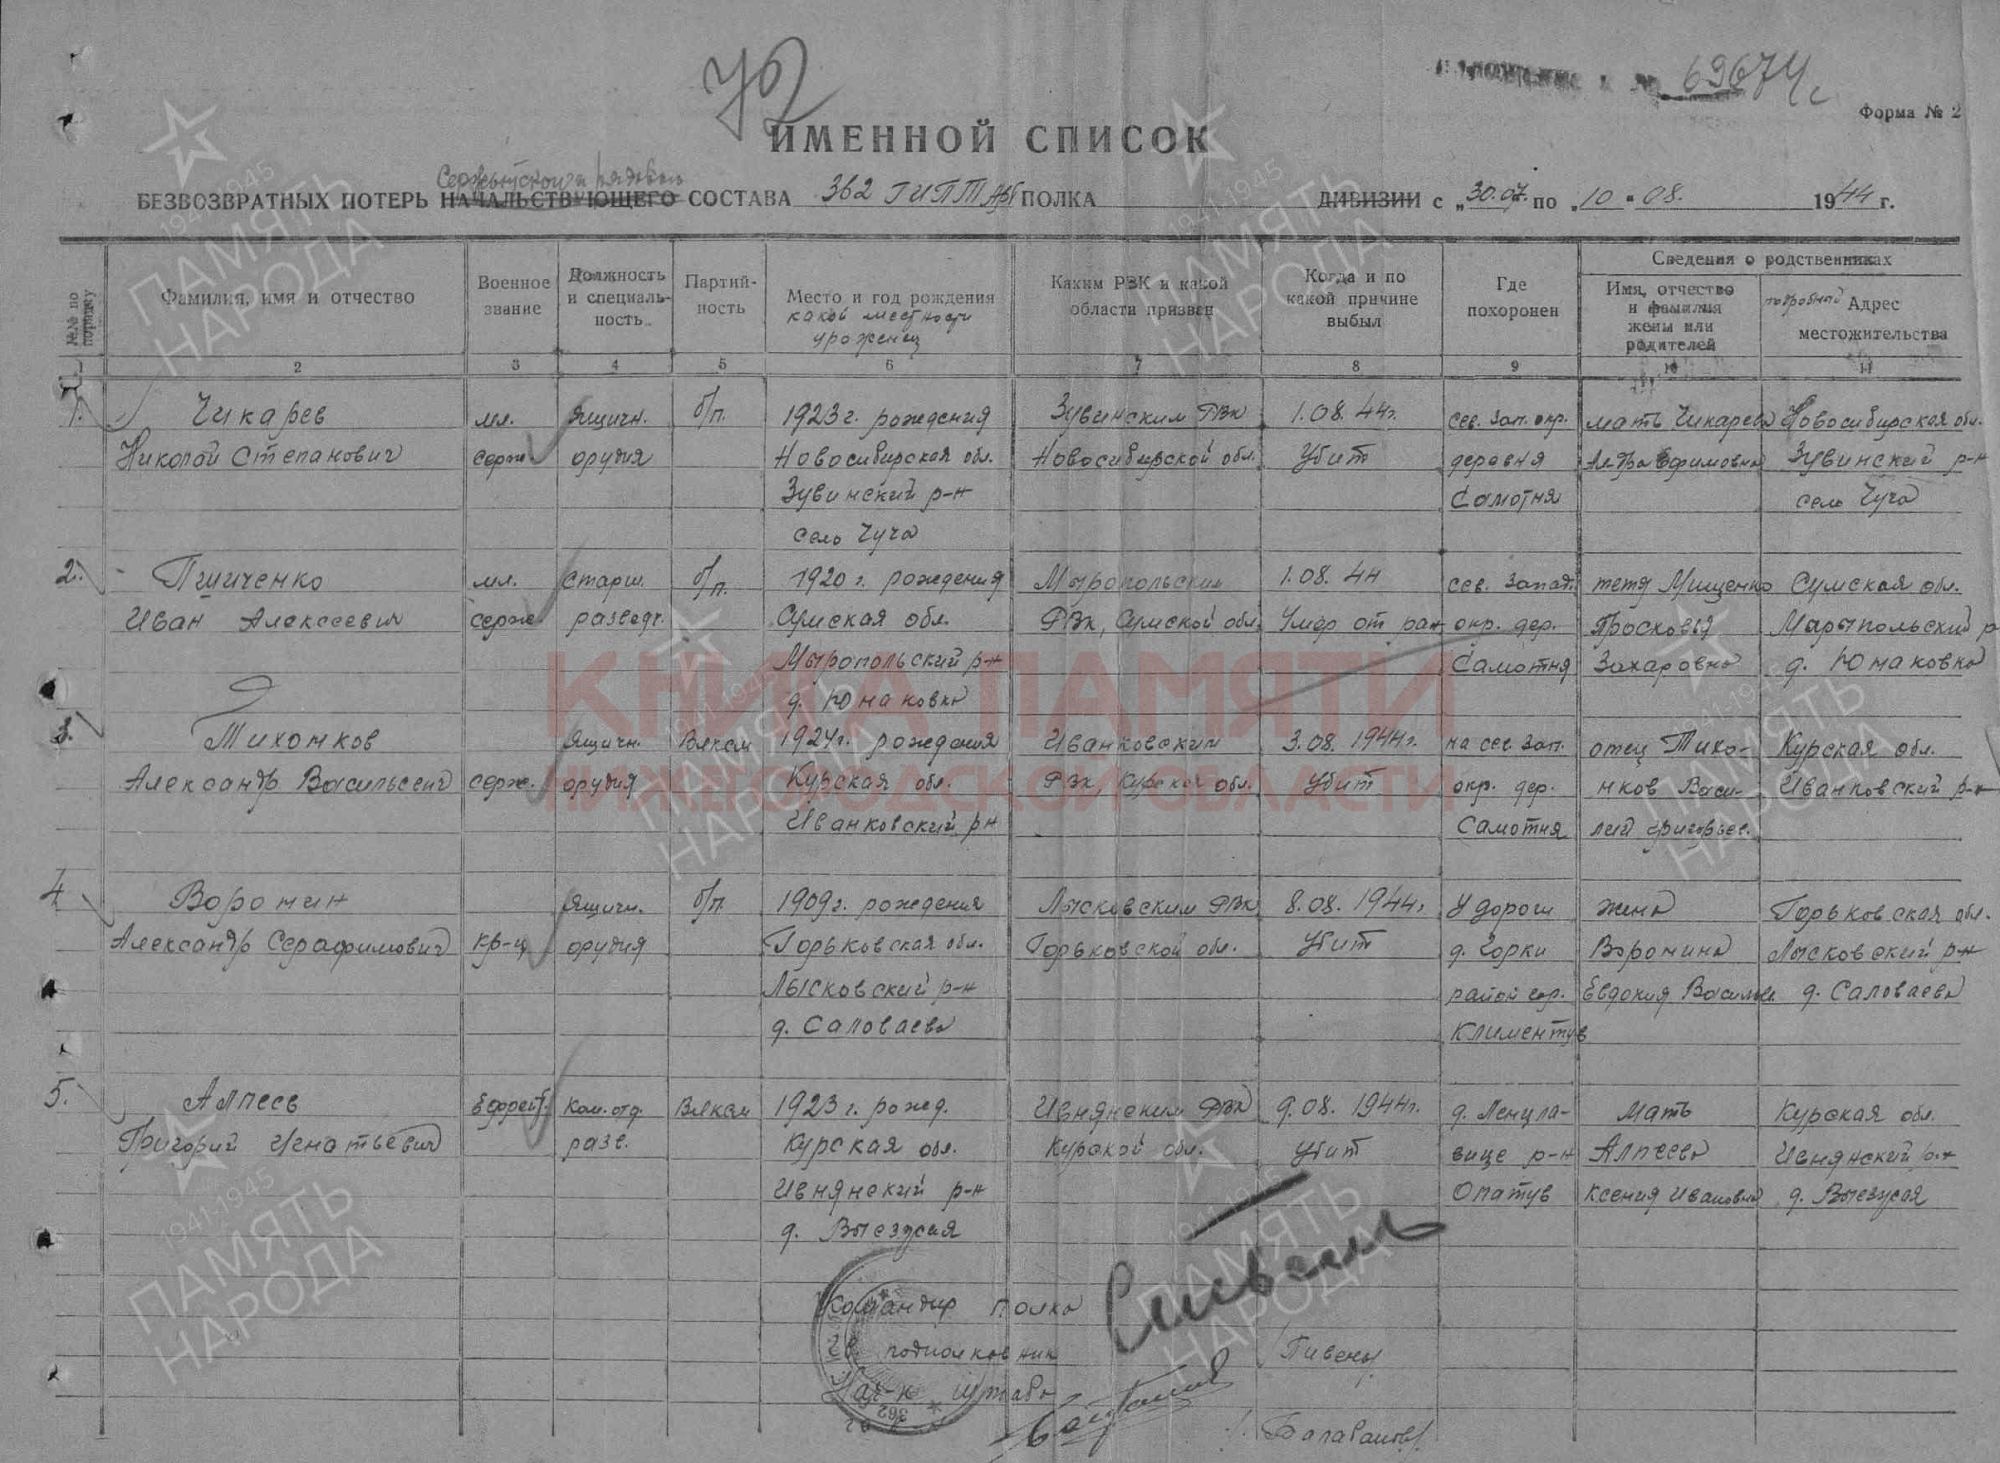 72
69674с
Форма № 2
ИМЕННОЙ СПИСОК
Сержантского и рядового
БЕЗВОЗВРАТНЫХ ПОТЕРЬ НАЧАЛЬСТВУЮЩЕГО СОСТАВА 362 ГИПТАП ПОЛКА ДИВИЗИИ с „30.07. по „10 " 08. 1944 г.
№№ по порядку
Фамилия, имя и отчество
Военное звание
Должность и специальность
Партийность
Место и год рождения
какой местности уроженец
Каким РВК и какой области призван
Когда и по какой причине выбыл
Где похоронен
Сведения о родственниках
Имя, отчество и фамилия жены или родителей
подробный Адрес местожительства
2 3 4 5 6 7 8 9 10 11
1. Чикарев мл. Ящичн. б/п. 1923 г. рождения Зувинским РВК 1.08.44г. сев. зап. окр. мать Чикарева Новосибирская обл.
Николай Степанович серж орудия Новосибирская обл. Новосибирской обл. Убит деревня Ефимовна Зувинский р-н
Зувинский р-н Самотня село Чуча
село Чуча
2. мл. старш. б/п. 1920 г. рождения Мыропольским 1.08.44 сев. запад. тетя Мищенко Сумская обл.
Иван Алексеевич серж разведч. Сумская обл. РВК, Сумской обл. Умер от ран окр. дер. Прасковья Марыпольский р
Мыропольский р-н Самотня Захаровна д. Юнаковка
д. Юнаковка
3. Тихонков Ящичн. Влксм 1924г. рождения Иванковским 3.08.1944г. на сев. зап. отец Тихо- Курская обл.
Александр Васильевич серж. орудия Курская обл. РВК Курской обл. Убит окр. дер. нков Васи- Иванковский р-н
Иванковский р-н Самотня лий Григорьев.
4 Воронин Ящичн. б/п. 1909 г. рождения Лысковским РВК 8.08.1944г. У дороги жена Горьковская обл.
Александр Серафимович кр-ц орудия Горьковская обл. Горьковской обл. Убит д. Горки Воронина Лысковский р-н
Лысковский р-н район гор. Евдокия Васильев д. Саловаева
д. Саловаева Климентув
5. Алпеев Ефрейт. Ком. отд. Влксм 1923 г. рожд. Ивнянским РВК 9.08.1944г. д. Ленцла- Мать Курская обл.
Григорий Игнатьевич разв. Курская обл. Курской обл. Убит вице р-н Алпеева Ивнянский р-н
Ивнянский р-н Опатув Ксения Ивановна д. Выезжая
д. Выезжая
Командир полка
гв. подполковник /Пивень/.
Нач-к штаба
/Балабанов/
362
КНИГА ПАМЯТИ
НИЖЕГОРОДСКОЙ ОБЛАСТИ
1941-1945
ПАМЯТЬ
НАРОДА
1941-1945
ПАМЯТЬ
НАРОДА
1941-1945
ПАМЯТЬ
НАРОДА
1941-1945
ПАМЯТЬ
НАРОДА
1941-1945
ПАМЯТЬ
НАРОДА
ПАМЯТЬ
НАРОДА